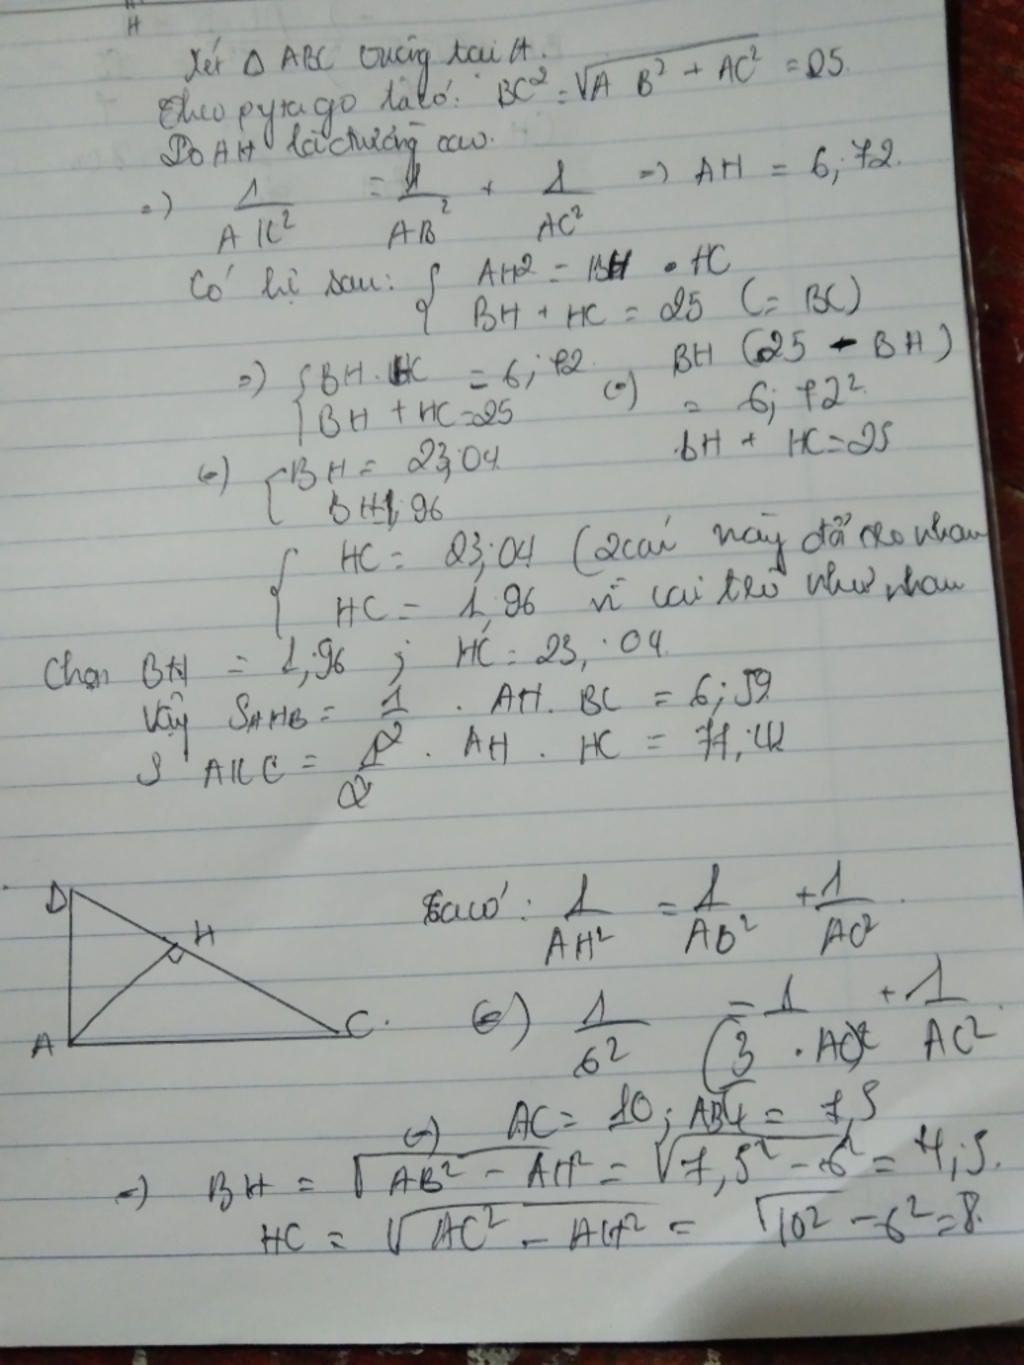 H
Xét Δ ABC vuông tại A.
Theo pytago ta có: BC² = √A B² + AC² = 25
Do AH là đường cao.
=) 1/AH² = 1/AB² + 1/AC² =) AH = 6,72.
Có hệ sau: { AH² = BH . HC
BH + HC = 25 (= BC)
=) { BH . HC = 6,72 (=) BH (25 - BH)
BH + HC = 25 = 6,72²
BH + HC = 25
(=) { BH = 23,04
BH 1,96
{ HC = 23,04 (2 cái này đổi cho nhau
HC = 1,96 vì vai trò như nhau
Chọn BH = 1,96 ; HC = 23,04
Vậy SAHB = 1/2 . AH . BC = 6,59
S AHC = 1/2 . AH . HC = 77,41
B
H
A
C.
Ta có: 1/AH² = 1/AB² + 1/AC²
(=) 1/6² = 1/(3/4 . AC)² + 1/AC²
(=) AC = 10; AB = 7,5
=) BH = √AB² - AH² = √7,5² - 6² = 4,5.
HC = √AC² - AH² = √10² - 6² = 8.